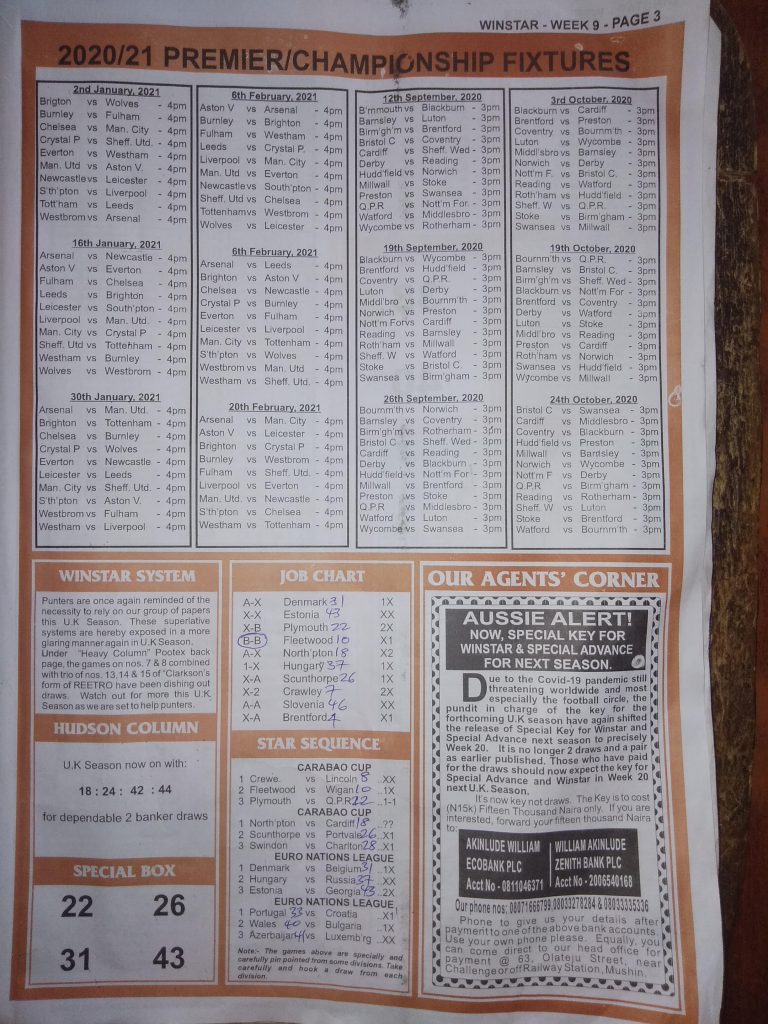 WINSTAR - WEEK 9 - PAGE 3
2020/21 PREMIER/CHAMPIONSHIP FIXTURES
2nd January, 2021
Brighton vs Wolves - 4pm
Burnley vs Fulham - 4pm
Chelsea vs Man. City - 4pm
Crystal P vs Sheff. Utd. - 4pm
Everton vs Westham - 4pm
Man. Utd vs Aston V. - 4pm
Newcastle vs Leicester - 4pm
S'th'pton vs Liverpool - 4pm
Tott'ham vs Leeds - 4pm
Westbrom vs Arsenal - 4pm
16th January, 2021
Arsenal vs Newcastle - 4pm
Aston V vs Everton - 4pm
Fulham vs Chelsea - 4pm
Leeds vs Brighton - 4pm
Leicester vs South'pton - 4pm
Liverpool vs Man. Utd. - 4pm
Man. City vs Crystal P - 4pm
Sheff. Utd vs Tottenham - 4pm
Westham vs Burnley - 4pm
Wolves vs Westbrom - 4pm
30th January, 2021
Arsenal vs Man. Utd. - 4pm
Brighton vs Tottenham - 4pm
Chelsea vs Burnley - 4pm
Crystal P vs Wolves - 4pm
Everton vs Newcastle - 4pm
Leicester vs Leeds - 4pm
Man. City vs Sheff. Utd. - 4pm
S'th'pton vs Aston V. - 4pm
Westbrom vs Fulham - 4pm
Westham vs Liverpool - 4pm
6th February, 2021
Aston V vs Arsenal - 4pm
Burnley vs Brighton - 4pm
Fulham vs Westham - 4pm
Leeds vs Crystal P. - 4pm
Liverpool vs Man. City - 4pm
Man. Utd vs Everton - 4pm
Newcastle vs South'pton - 4pm
Sheff. Utd vs Chelsea - 4pm
Tottenham vs Westbrom - 4pm
Wolves vs Leicester - 4pm
6th February, 2021
Arsenal vs Leeds - 4pm
Brighton vs Aston V - 4pm
Chelsea vs Newcastle - 4pm
Crystal P vs Burnley - 4pm
Everton vs Fulham - 4pm
Leicester vs Liverpool - 4pm
Man. City vs Tottenham - 4pm
S'th'pton vs Wolves - 4pm
Westbrom vs Man. Utd - 4pm
Westham vs Sheff. Utd. - 4pm
20th February, 2021
Arsenal vs Man. City - 4pm
Aston V vs Leicester - 4pm
Brighton vs Crystal P - 4pm
Burnley vs Westbrom - 4pm
Fulham vs Sheff. Utd. - 4pm
Liverpool vs Everton - 4pm
Man. Utd. vs Newcastle - 4pm
S'th'pton vs Chelsea - 4pm
Westham vs Tottenham - 4pm
12th September, 2020
B'rnmouth vs Blackburn - 3pm
Barnsley vs Luton - 3pm
Birm'gh'm vs Brentford - 3pm
Bristol C vs Coventry - 3pm
Cardiff vs Sheff. Wed - 3pm
Derby vs Reading - 3pm
Hudd'field vs Norwich - 3pm
Millwall vs Stoke - 3pm
Preston vs Swansea - 3pm
Q.P.R vs Nott'm For. - 3pm
Watford vs Middlesbro - 3pm
Wycombe vs Rotherham - 3pm
19th September, 2020
Blackburn vs Wycombe - 3pm
Brentford vs Hudd'field - 3pm
Coventry vs Q.P.R. - 3pm
Luton vs Derby - 3pm
Middl'bro vs Bournm'th - 3pm
Norwich vs Preston - 3pm
Nott'm For vs Cardiff - 3pm
Reading vs Barnsley - 3pm
Roth'ham vs Millwall - 3pm
Sheff. W vs Watford - 3pm
Stoke vs Bristol C. - 3pm
Swansea vs Birm'gham - 3pm
26th September, 2020
Bournm'th vs Norwich - 3pm
Barnsley vs Coventry - 3pm
Birm'gh'm vs Rotherham - 3pm
Bristol C vs Sheff. Wed - 3pm
Cardiff vs Reading - 3pm
Derby vs Blackburn - 3pm
Hudd'field vs Nott'm For - 3pm
Millwall vs Brentford - 3pm
Preston vs Stoke - 3pm
Q.P.R vs Middlesbro - 3pm
Watford vs Luton - 3pm
Wycombe vs Swansea - 3pm
3rd October, 2020
Blackburn vs Cardiff - 3pm
Brentford vs Preston - 3pm
Coventry vs Bournm'th - 3pm
Luton vs Wycombe - 3pm
Middl'sbro vs Barnsley - 3pm
Norwich vs Derby - 3pm
Nott'm F. vs Bristol C. - 3pm
Reading vs Watford - 3pm
Roth'ham vs Hudd'field - 3pm
Sheff. W vs Q.P.R. - 3pm
Stoke vs Birm'gham - 3pm
Swansea vs Millwall - 3pm
19th October, 2020
Bournm'th vs Q.P.R. - 3pm
Barnsley vs Bristol C. - 3pm
Birm'gh'm vs Sheff. Wed - 3pm
Blackburn vs Nott'm For - 3pm
Brentford vs Coventry - 3pm
Derby vs Watford - 3pm
Luton vs Stoke - 3pm
Middl'bro vs Reading - 3pm
Preston vs Cardiff - 3pm
Roth'ham vs Norwich - 3pm
Swansea vs Hudd'field - 3pm
Wycombe vs Millwall - 3pm
24th October, 2020
Bristol C vs Swansea - 3pm
Cardiff vs Middlesbro - 3pm
Coventry vs Blackburn - 3pm
Hudd'field vs Preston - 3pm
Millwall vs Barnsley - 3pm
Norwich vs Wycombe - 3pm
Nott'm F vs Derby - 3pm
Q.P.R vs Birm'gham - 3pm
Reading vs Rotherham - 3pm
Sheff. W vs Luton - 3pm
Stoke vs Brentford - 3pm
Watford vs Bournm'th - 3pm
WINSTAR SYSTEM
Punters are once again reminded of the
necessity to rely on our group of papers
this U.K Season. These superlative
systems are hereby exposed in a more
glaring manner again in U.K Season.
Under "Heavy Column" Pootex back
page, the games on nos. 7 & 8 combined
with trio of nos. 13,14 & 15 of "Clarkson's
form of REETRO have been dishing out
draws. Watch out for more this U.K
Season as we are set to help punters.
HUDSON COLUMN
U.K Season now on with:
18 : 24 : 42 : 44
for dependable 2 banker draws
SPECIAL BOX
22 26
31 43
JOB CHART
A-X Denmark 31 1X
X-X Estonia 43 XX
X-B Plymouth 22 2X
B-B Fleetwood 10 X1
A-X North'pton 18 X2
1-X Hungary 37 1X
X-A Scunthorpe 26 1X
X-2 Crawley 7 2X
A-A Slovenia 46 XX
X-A Brentford 4 X1
STAR SEQUENCE
CARABAO CUP
1 Crewe. vs Lincoln 8 ..XX
2 Fleetwood vs Wigan 10 ..1X
3 Plymouth vs Q.P.R 22 ..1-1
CARABAO CUP
1 North'pton vs Cardiff 18 ..??
2 Scunthorpe vs Portvale 26 ..X1
3 Swindon vs Charlton 28 ..X1
EURO NATIONS LEAGUE
1 Denmark vs Belgium 31 ..1X
2 Hungary vs Russia 37 ..XX
3 Estonia vs Georgia 43 ..2X
EURO NATIONS LEAGUE
1 Portugal 33 vs Croatia ..X1
2 Wales 40 vs Bulgaria ..1X
3 Azerbaijan 41 vs Luxemb'rg ...XX
Note:- The games above are specially and
carefully pin pointed from some divisions. Take
carefully and hook a draw from each
division.
OUR AGENTS' CORNER
AUSSIE ALERT!
NOW, SPECIAL KEY FOR
WINSTAR & SPECIAL ADVANCE
FOR NEXT SEASON.
Due to the Covid-19 pandemic still
threatening worldwide and most
especially the football circle, the
pundit in charge of the key for the
forthcoming U.K season have again shifted
the release of Special Key for Winstar and
Special Advance next season to precisely
Week 20. It is no longer 2 draws and a pair
as earlier published. Those who have paid
for the draws should now expect the key for
Special Advance and Winstar in Week 20
next U.K. Season.
It's now key not draws. The Key is to cost
(N15k) Fifteen Thousand Naira only. If you are
interested, forward your fifteen thousand Naira
to:
AKINLUDE WILLIAM
ECOBANK PLC
Acct No - 0811046371
WILLIAM AKINLUDE
ZENITH BANK PLC
Acct No - 2006540168
Our phone nos: 08071666799,08033278284 & 08033335336
Phone to give us your details after
payment to one of the above bank accounts.
Use your own phone please. Equally, you
can come direct to our head office for
payment @ 63, Olateju Street, near
Challenge or off Railway Station, Mushin.